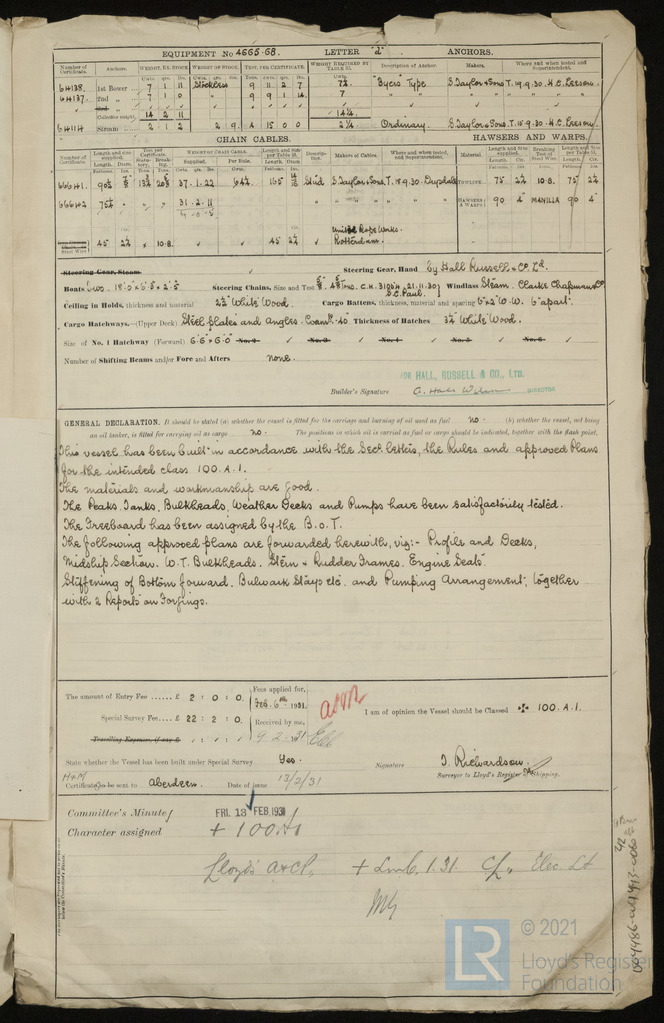 EQUIPMENT No 4665.68. LETTER "d" ANCHORS.
Number of Certificate. Anchors. WEIGHT, EX. STOCK. WEIGHT OF STOCK. TEST, PER CERTIFICATE. WEIGHT REQUIRED BY TABLE 31. Description of Anchor. Makers. Where and when tested and Superintendent.
Cwts. qrs. lbs. Cwts. qrs. lbs. Tons. cwts. qrs. lbs. Cwts.
64138. 1st Bower 7 1 11 Stockless 9 11 2 7 7¼ "Byers" Type S. Taylor & Sons T. 19.9.30. H.C. Leeson.
64137. 2nd " 7 1 0 9 9 1 14 7 " " " "
3rd "
Collective weight 14 2 11 14¼
64114 Stream 2 1 2 2 9 4 15 0 0 2¼ Ordinary. S. Taylor & Sons T. 15.9.30. H.C. Leeson.
CHAIN CABLES. HAWSERS AND WARPS.
Number of Certificate. Length and size supplied. Test per Certificate. WEIGHT OF CHAIN CABLE. Length and size per Table 31. Description. Makers of Cables. Where and when tested, and Superintendent. Material. Length and size supplied. Breaking Test of Steel Wire. Length and size per Table 31.
Length. Diam. Supplied. Per Rule. Length. Diam. Length. Cir. Length. Cir.
66641. 37.1.22 64¼ 165 Stud S. Taylor & Sons T. 18.9.30. TOWLINE 75 2¼ 10.8. 75 2¼
66642 75 31.2.11 " " " " HAWSERS & WARPS 90 4" MANILLA 90 4"
United Rope Works.
45 2¼ 10.8. 45 2¼ Rotterdam.
Steering Gear, Steam Steering Gear, Hand By Hall Russell & Co. Ld.
Boats two 18'.0 x 6'.5 x 2'.5 Steering Chains, Size and Test C.H. 31064 21.11.30 S.C. Paul. Windlass Steam. Clarke Chapman & Co
Ceiling in Holds, thickness and material 2½" White Wood. Cargo Battens, thickness, material and spacing 6" x 2" W.W. 6" apart.
Cargo Hatchways.—(Upper Deck) Steel plates and angles. .40. Thickness of Hatches 3¼" White Wood.
Size of No. 1 Hatchway (Forward) 6'.6" x 6'.0" No. 2 No. 3 No. 4 No. 5 No. 6
Number of Shifting Beams and/or Fore and Afters none.
FOR HALL, RUSSELL & CO., LTD.
Builder's Signature DIRECTOR
GENERAL DECLARATION. It should be stated (a) whether the vessel is fitted for the carriage and burning of oil used as fuel no. (b) whether the vessel, not being
an oil tanker, is fitted for carrying oil as cargo no. The positions in which oil is carried as fuel or cargo should be indicated, together with the flash point.
This vessel has been built in accordance with the Secy letters, the Rules and approved Plans
for the intended class 100.A.1.
The materials and workmanship are good.
The Peaks, Tanks, Bulkheads, Weather Decks and Pumps have been satisfactorily tested.
The Freeboard has been assigned by the B.o.T.
The following approved plans are forwarded herewith, viz:- Profile and Decks,
Midship Section. W.T. Bulkheads. Stern & Rudder Frames. Engine Seats.
Stiffening of Bottom forward. Bulwark Stays etc. and Pumping Arrangement, together
with 2 Reports on Forgings.
The amount of Entry Fee ...... £ 2 : 0 : 0. Fees applied for, Feb. 6th 1931.
Special Survey Fee.... £ 22 : 2 : 0. Received by me, 9.2.31
Travelling Expenses, (if any) £
I am of opinion the Vessel should be Classed ✠ 100.A.1.
State whether the Vessel has been built under Special Survey Yes. Signature J. Richardson.
Surveyor to Lloyd's Register of Shipping.
Certificate to be sent to Aberdeen. Date of issue 13/2/31
Committee's Minute FRI. 13 FEB 1931
Character assigned + 100 A1
Lloyd's A&CP. + LMC. 1.31. CL. Elec. Lt
© 2021
LR
Lloyd's Register
Foundation